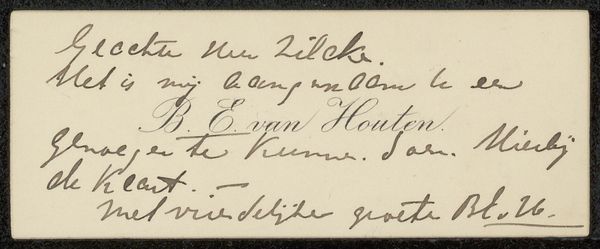 Geachte Heer Zilcke.
Het is mij aangenaam u een
B. E. van Houten.
genoegen te kunnen doen. Hierbij
de kaart. —
Met vriendelijke groete BEvH.